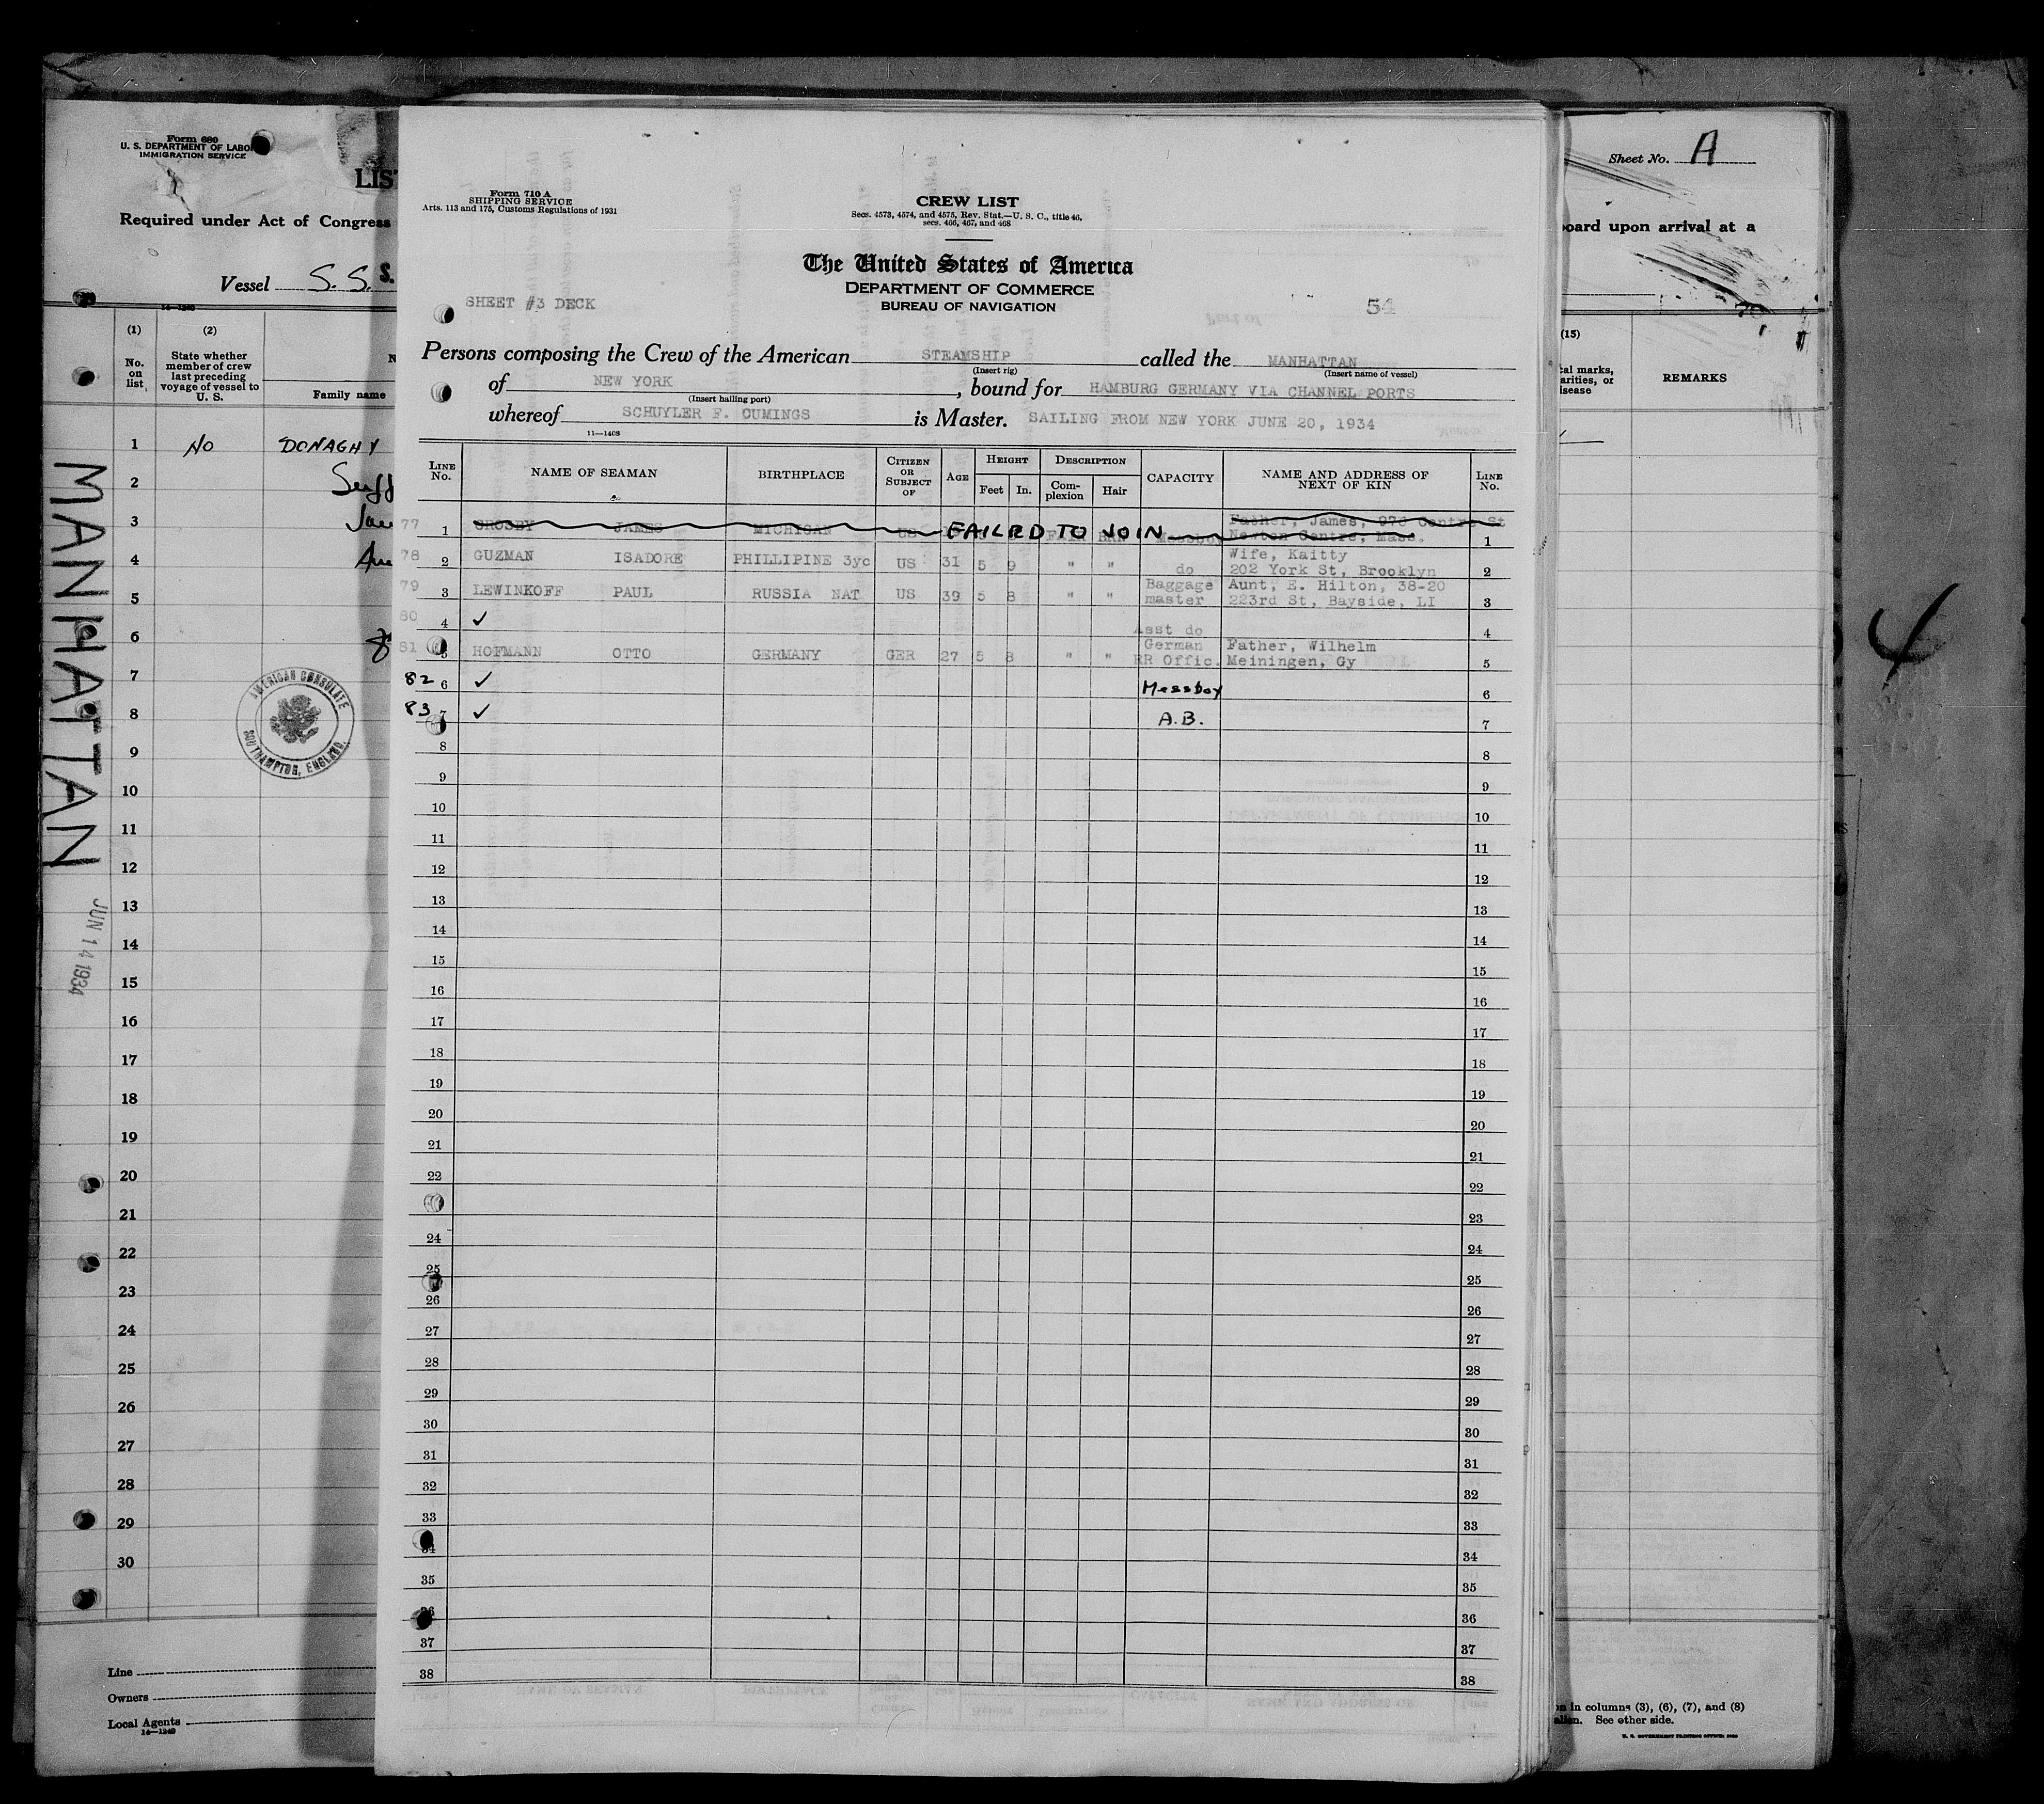 Form 680
U. S. DEPARTMENT OF LABO
IMMIGRATION SERVICE
LIS
Required under Act of Congress
Vessel S. S. S.
14—1240
(1) (2)
No. on list
State whether member of crew last preceding voyage of vessel to U. S.
N
Family name
1 NO DONAGHY
2
3
4
5
6
7
8
9
10
11
12
13
14
15
16
17
18
19
20
21
22
23
24
25
26
27
28
29
30
MANHATTAN
JUN 14 1934
AMERICAN CONSULATE
SOUTHAMPTON, ENGLAND.
Line
Owners
Local Agents
14—1240
Form 710 A
SHIPPING SERVICE
Arts. 113 and 175, Customs Regulations of 1931
CREW LIST
Secs. 4573, 4574, and 4575, Rev. Stat.—U. S. C., title 46,
secs. 466, 467, and 468
The United States of America
DEPARTMENT OF COMMERCE
BUREAU OF NAVIGATION
SHEET #3 DECK
54
Persons composing the Crew of the American STEAMSHIP called the MANHATTAN
(Insert rig) (Insert name of vessel)
of NEW YORK, bound for HAMBURG GERMANY VIA CHANNEL PORTS
(Insert hailing port)
whereof SCHUYLER F. CUMINGS is Master. SAILING FROM NEW YORK JUNE 20, 1934
11—1408
LINE No. NAME OF SEAMAN BIRTHPLACE CITIZEN OR SUBJECT OF AGE HEIGHT Feet In. DESCRIPTION Complexion Hair CAPACITY NAME AND ADDRESS OF NEXT OF KIN LINE No.
77 1 CROSBY JAMES MICHIGAN US FAILED TO JOIN Father, James, 976 Centre St
Newton Centre, Mass. 1
78 2 GUZMAN ISADORE PHILLIPINE 3yc US 31 5 9 " " do Wife, Kaitty
202 York St, Brooklyn 2
79 3 LEWINKOFF PAUL RUSSIA NAT US 39 5 8 " " Baggage master Aunt, E. Hilton, 38-20
223rd St, Bayside, LI 3
80 4 ✓ Asst do 4
81 5 HOFMANN OTTO GERMANY GER 27 5 8 " " German RR Offic. Father, Wilhelm
Meiningen, Gy 5
82 6 ✓ Messboy 6
83 7 ✓ A.B. 7
8 8
9 9
10 10
11 11
12 12
13 13
14 14
15 15
16 16
17 17
18 18
19 19
20 20
21 21
22 22
23
24 24
25 25
26 26
27 27
28 28
29 29
30 30
31 31
32 32
33 33
34 34
35 35
36 36
37 37
38 38
Sheet No. A
board upon arrival at a
(15)
REMARKS
4
on in columns (3), (6), (7), and (8)
alien. See other side.